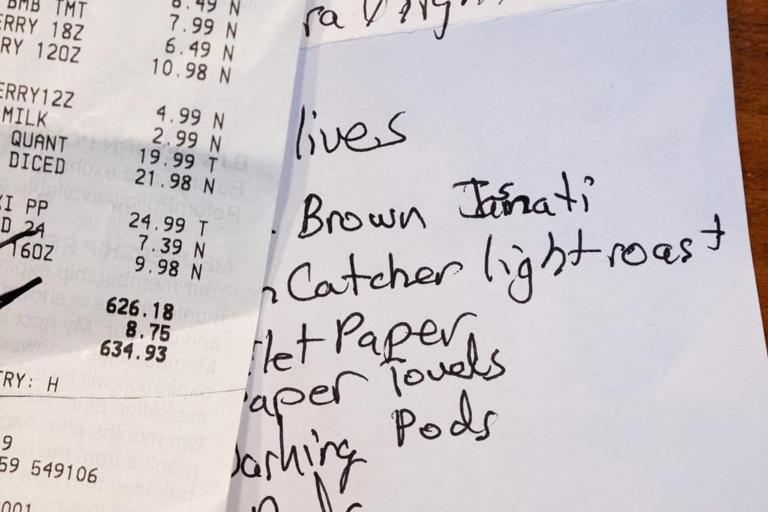 BMB TMT 8.49 N
ERRY 18Z 7.99 N
RY 120Z 6.49 N
10.98 N
ERRY12Z
MILK 4.99 N
QUANT 2.99 N
DICED 19.99 T
21.98 N
KI PP
D 24 24.99 T
160Z 7.39 N
9.98 N
626.18
8.75
634.93
TRY: H
9
59 549106
001
ra
lives
Brown Jasmati
Catcher light roast
let Paper
aper Towels
ashing Pods